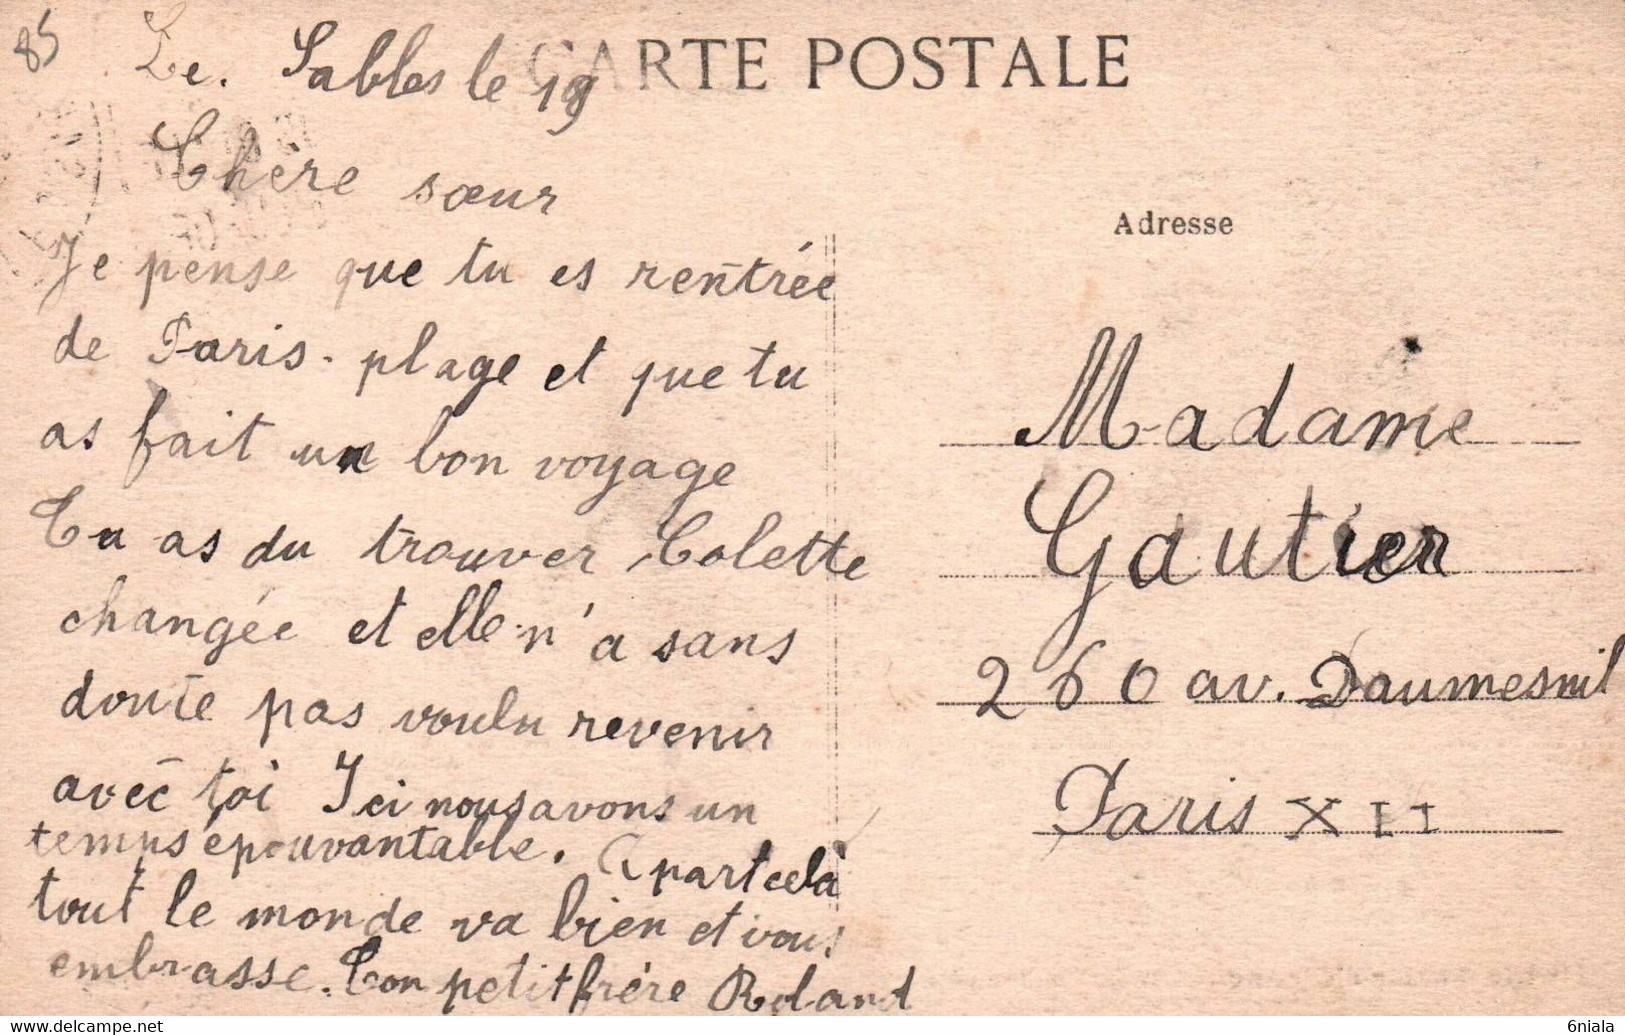 85
Le. Sables le 19
CARTE POSTALE
Chère sœur
Je pense que tu es rentrée
de Paris-plage et que tu
as fait un bon voyage
Tu as du trouver Colette
changée et elle n'a sans
doute pas voulu revenir
avec toi Ici nous avons un
temps épouvantable. A part cela
tout le monde va bien et vous
embrasse. Ton petit frère Roland
Adresse
Madame
Gautier
260 av. Daumesnil
Paris XII
6niala